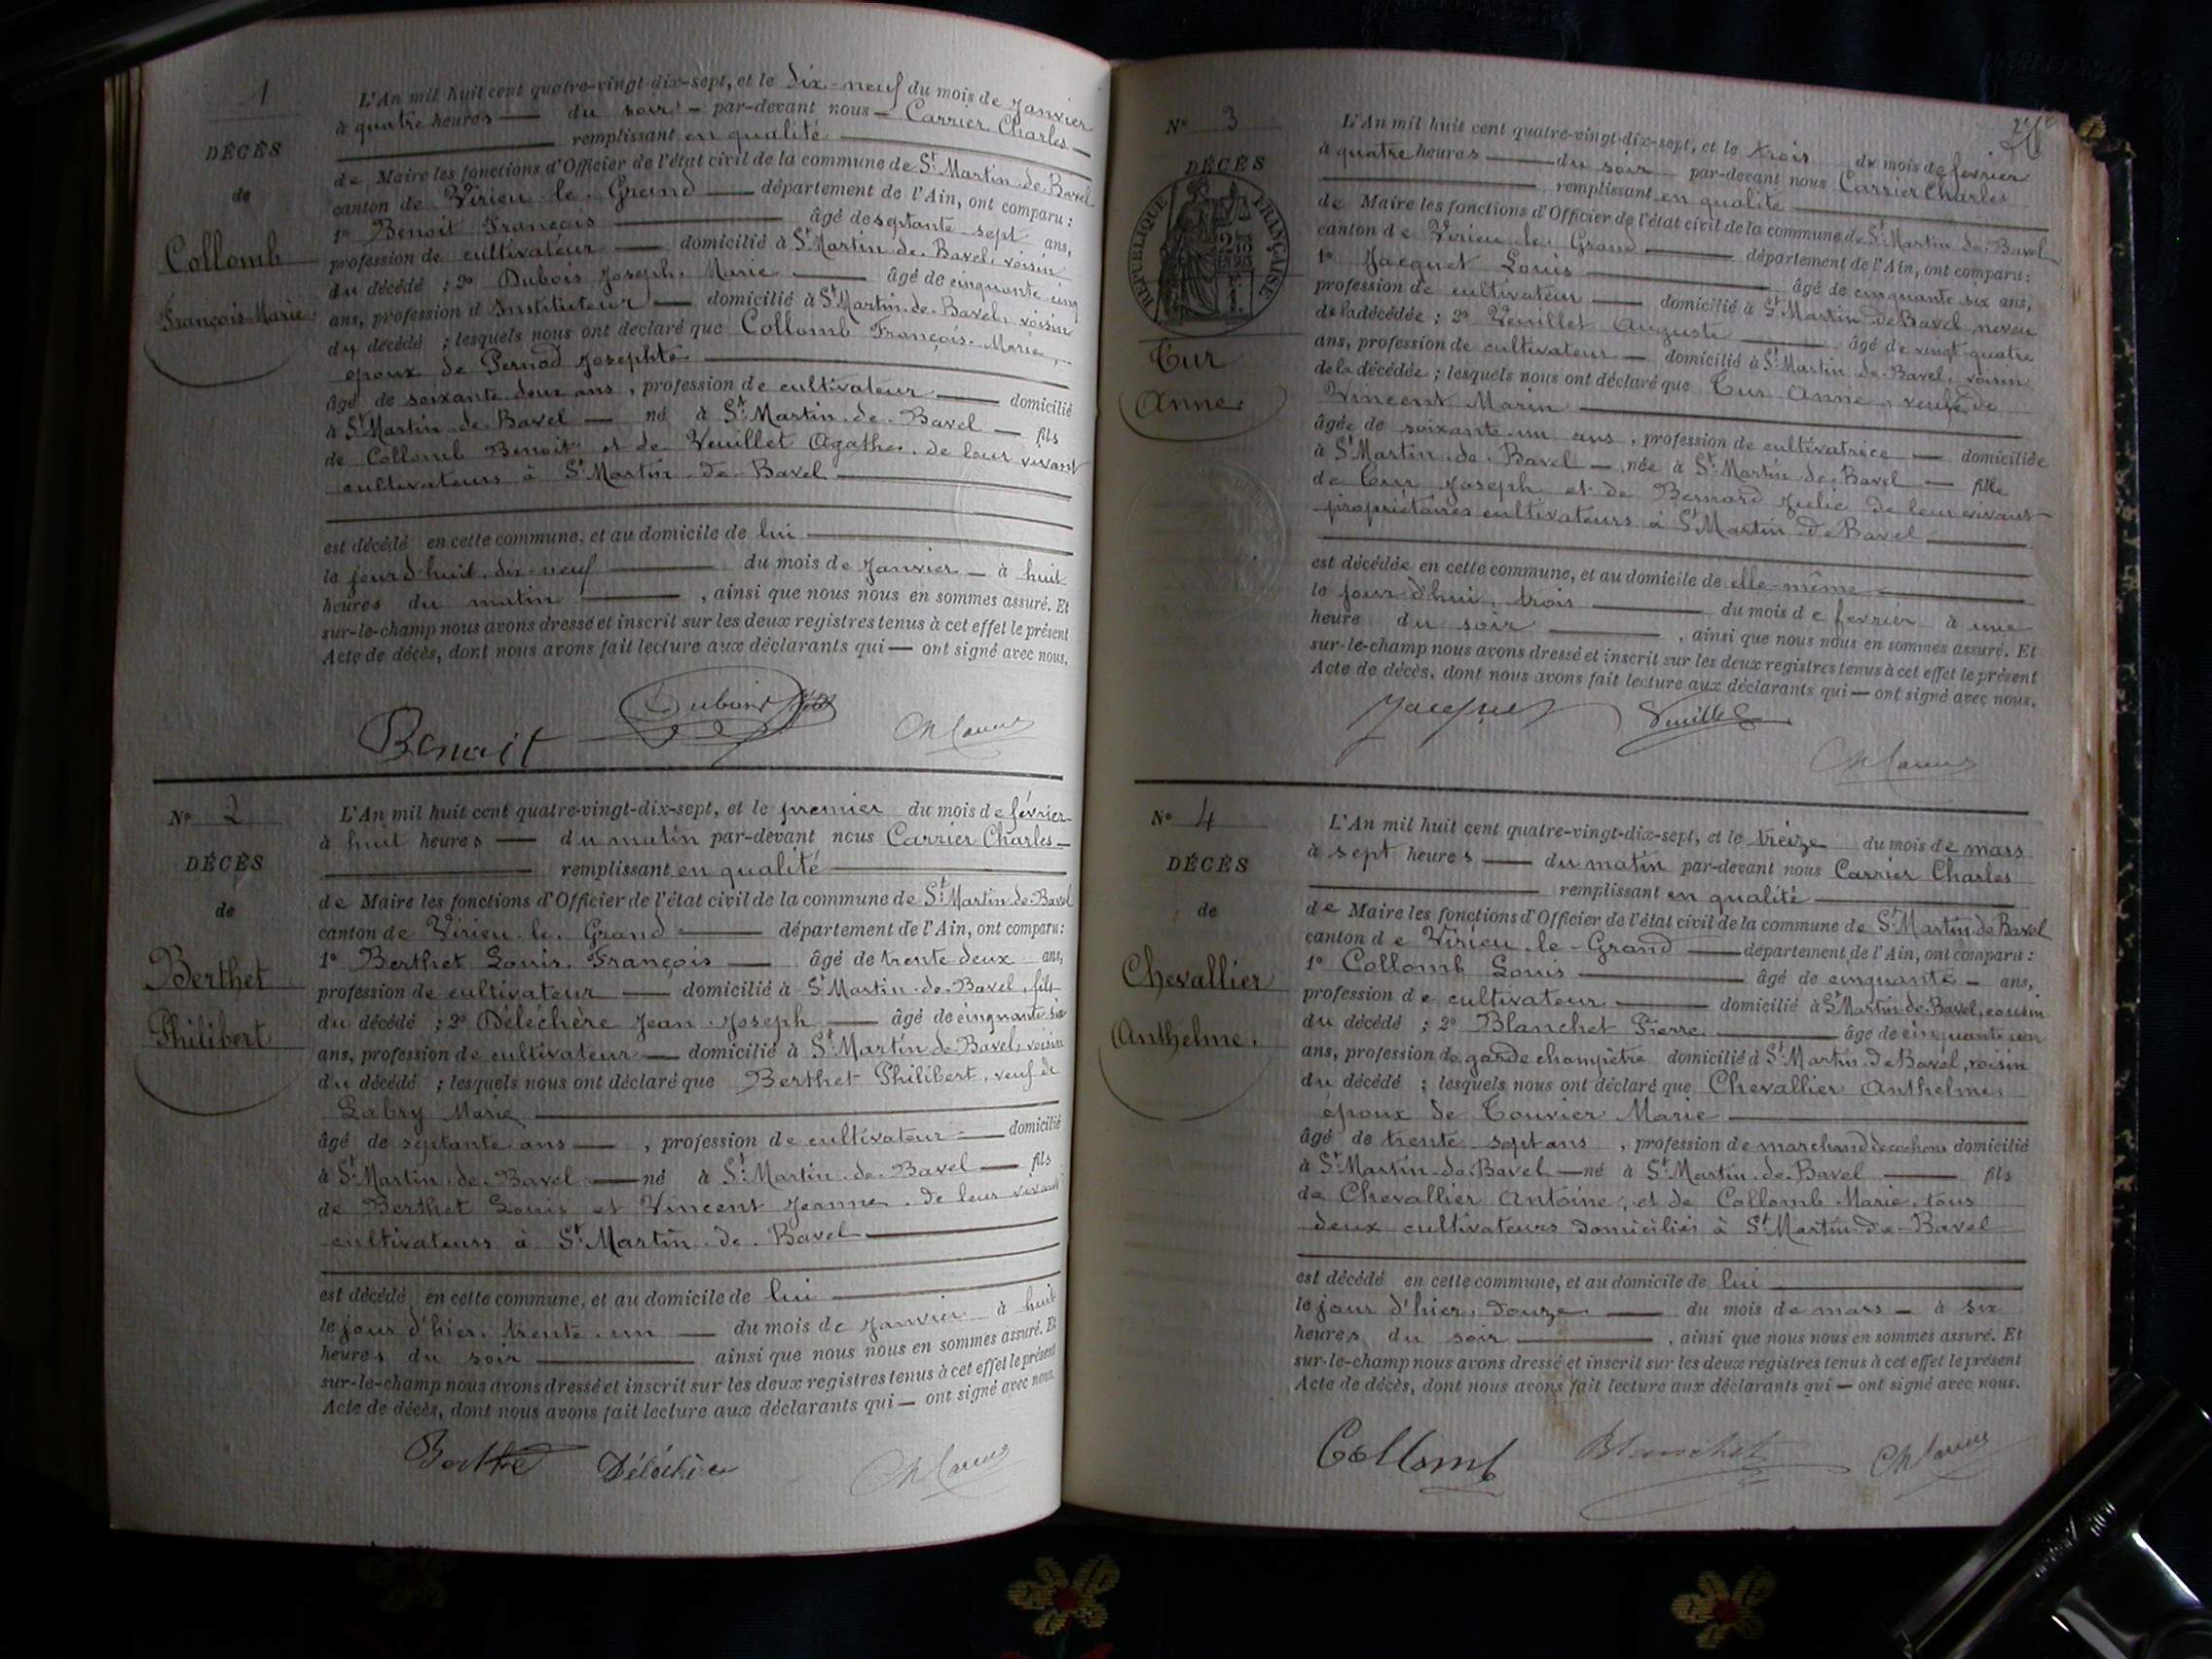 1
DÉCÈS
de
Collomb
François-Marie
L'An mil huit cent quatre-vingt-dix-sept, et le dix-neuf du mois de Janvier
à quatre heures — du soir — par-devant nous — Carrier Charles —
remplissant en qualité
de Maire les fonctions d'Officier de l'état civil de la commune de St Martin-de-Bavel
canton de Virieu-le-Grand — département de l'Ain, ont comparu :
1° Benoit François — âgé de septante sept ans,
profession de cultivateur — domicilié à St Martin-de-Bavel, voisin
du décédé ; 2° Dubois Joseph-Marie — âgé de cinquante cinq
ans, profession d'Instituteur — domicilié à St Martin-de-Bavel, voisin
du décédé ; lesquels nous ont déclaré que Collomb François-Marie,
époux de Pernod Josephte
âgé de soixante-deux ans, profession de cultivateur — domicilié
à St Martin-de-Bavel — né à St Martin-de-Bavel — fils
de Collomb Benoit et de Vuillet Agathe, de leur vivant
cultivateurs à St Martin-de-Bavel
est décédé en cette commune, et au domicile de lui
le jour d'huit, dix-neuf — du mois de Janvier — à huit
heures du matin — , ainsi que nous nous en sommes assuré. Et
sur-le-champ nous avons dressé et inscrit sur les deux registres tenus à cet effet le présent
Acte de décès, dont nous avons fait lecture aux déclarants qui — ont signé avec nous.
Benoit Dubois Ch Carrier
N° 2
DÉCÈS
de
Berthet
Philibert
L'An mil huit cent quatre-vingt-dix-sept, et le premier du mois de février
à huit heures — du matin par-devant nous Carrier Charles —
remplissant en qualité
de Maire les fonctions d'Officier de l'état civil de la commune de St Martin-de-Bavel
canton de Virieu-le-Grand — département de l'Ain, ont comparu :
1° Berthet Louis-François — âgé de trente deux ans,
profession de cultivateur — domicilié à St Martin-de-Bavel, fils
du décédé ; 2° Déléchère Jean-Joseph — âgé de cinquante six
ans, profession de cultivateur — domicilié à St Martin-de-Bavel, voisin
du décédé ; lesquels nous ont déclaré que Berthet Philibert, veuf de
Labry Marie
âgé de septante ans — , profession de cultivateur — domicilié
à St Martin-de-Bavel — né à St Martin-de-Bavel — fils
de Berthet Louis et Vincent Jeanne, de leur vivant
cultivateurs à St Martin-de-Bavel
est décédé en cette commune, et au domicile de lui
le jour d'hier, trente-un — du mois de Janvier à huit
heures du soir — ainsi que nous nous en sommes assuré. Et
sur-le-champ nous avons dressé et inscrit sur les deux registres tenus à cet effet le présent
Acte de décès, dont nous avons fait lecture aux déclarants qui — ont signé avec nous.
Berthet Déléchère Ch Carrier
N° 3
DÉCÈS
RÉPUBLIQUE FRANÇAISE
Cur
Anne
L'An mil huit cent quatre-vingt-dix-sept, et le trois du mois de février
à quatre heures — du soir — par-devant nous Carrier Charles
remplissant en qualité
de Maire les fonctions d'Officier de l'état civil de la commune de St Martin-de-Bavel
canton de Virieu-le-Grand — département de l'Ain, ont comparu :
1° Jacquet Louis — âgé de cinquante six ans,
profession de cultivateur — domicilié à St Martin-de-Bavel, neveu
de la décédée ; 2° Vuillet Auguste — âgé de vingt-quatre
ans, profession de cultivateur — domicilié à St Martin-de-Bavel, voisin
de la décédée ; lesquels nous ont déclaré que Cur Anne, veuve de
Vincent Marin
âgée de soixante-un ans, profession de cultivatrice — domiciliée
à St Martin-de-Bavel — née à St Martin-de-Bavel — fille
de Cur Joseph et de Bernard Julie de leur vivant
propriétaires cultivateurs à St Martin-de-Bavel
est décédée en cette commune, et au domicile de elle-même
le jour d'hui, trois — du mois de février à une
heure du soir — , ainsi que nous nous en sommes assuré. Et
sur-le-champ nous avons dressé et inscrit sur les deux registres tenus à cet effet le présent
Acte de décès, dont nous avons fait lecture aux déclarants qui — ont signé avec nous.
Jacquet Vuillet
Ch Carrier
N° 4
DÉCÈS
de
Chevallier
Anthelme
L'An mil huit cent quatre-vingt-dix-sept, et le treize du mois de mars
à sept heures — du matin par-devant nous Carrier Charles
remplissant en qualité
de Maire les fonctions d'Officier de l'état civil de la commune de St Martin-de-Bavel
canton de Virieu-le-Grand — département de l'Ain, ont comparu :
1° Collomb Louis — âgé de cinquante — ans,
profession de cultivateur — domicilié à St Martin-de-Bavel, cousin
du décédé ; 2° Blanchet Pierre — âgé de cinquante un
ans, profession de garde champêtre domicilié à St Martin-de-Bavel, voisin
du décédé ; lesquels nous ont déclaré que Chevallier Anthelme
époux de Touvier Marie
âgé de trente-sept ans, profession de marchand de cochons domicilié
à St Martin-de-Bavel — né à St Martin-de-Bavel — fils
de Chevallier Antoine, et de Collomb Marie, tous
deux cultivateurs domiciliés à St Martin-de-Bavel
est décédé en cette commune, et au domicile de lui
le jour d'hier, douze — du mois de mars — à six
heures du soir — , ainsi que nous nous en sommes assuré. Et
sur-le-champ nous avons dressé et inscrit sur les deux registres tenus à cet effet le présent
Acte de décès, dont nous avons fait lecture aux déclarants qui — ont signé avec nous.
Collomb Blanchet Ch Carrier